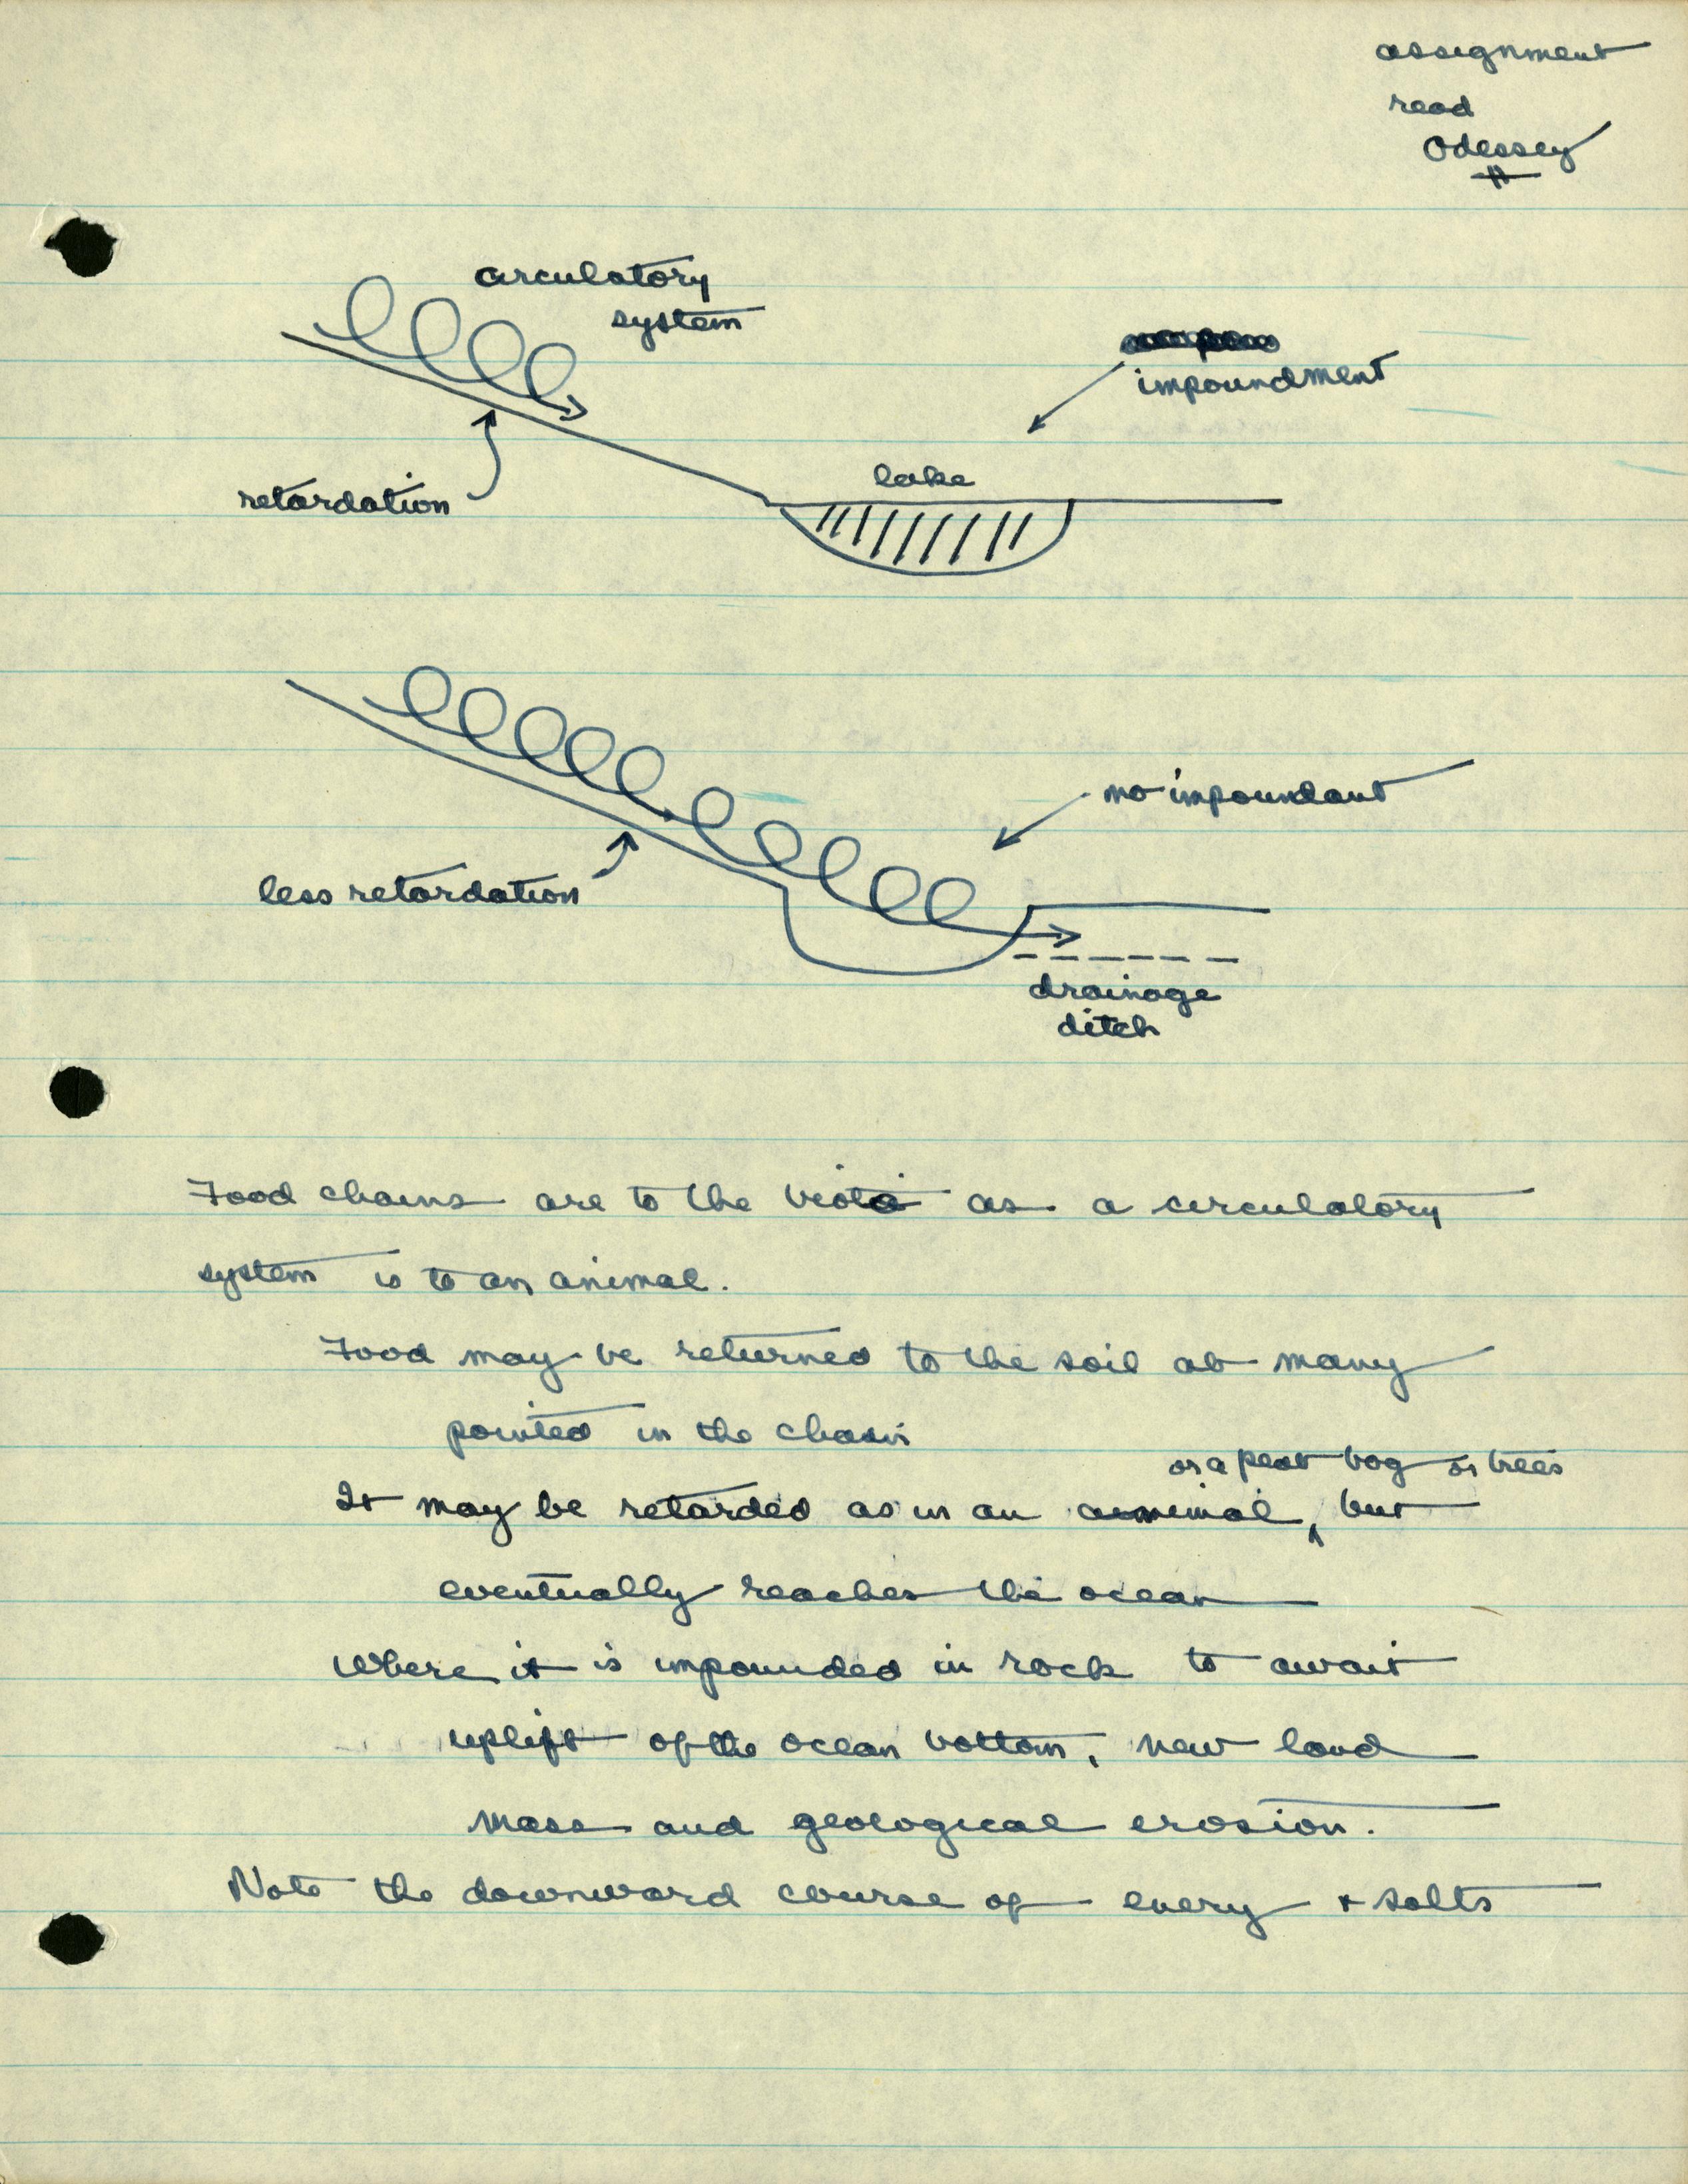 assignment
read
Odessey
circulatory
system
impoundment
retardation
lake
no impoundant
less retardation
drainage
ditch
Food chains are to the biota as a circulatory
system is to an animal.
Food may be returned to the soil at many
pointed in the chain
or a peat bog or trees
It may be retarded as in an animal, but
eventually reaches the ocean
Where it is impounded in rock to await
uplift of the ocean bottom, new land
mass and geological erosion.
Note the downward course of every + salts